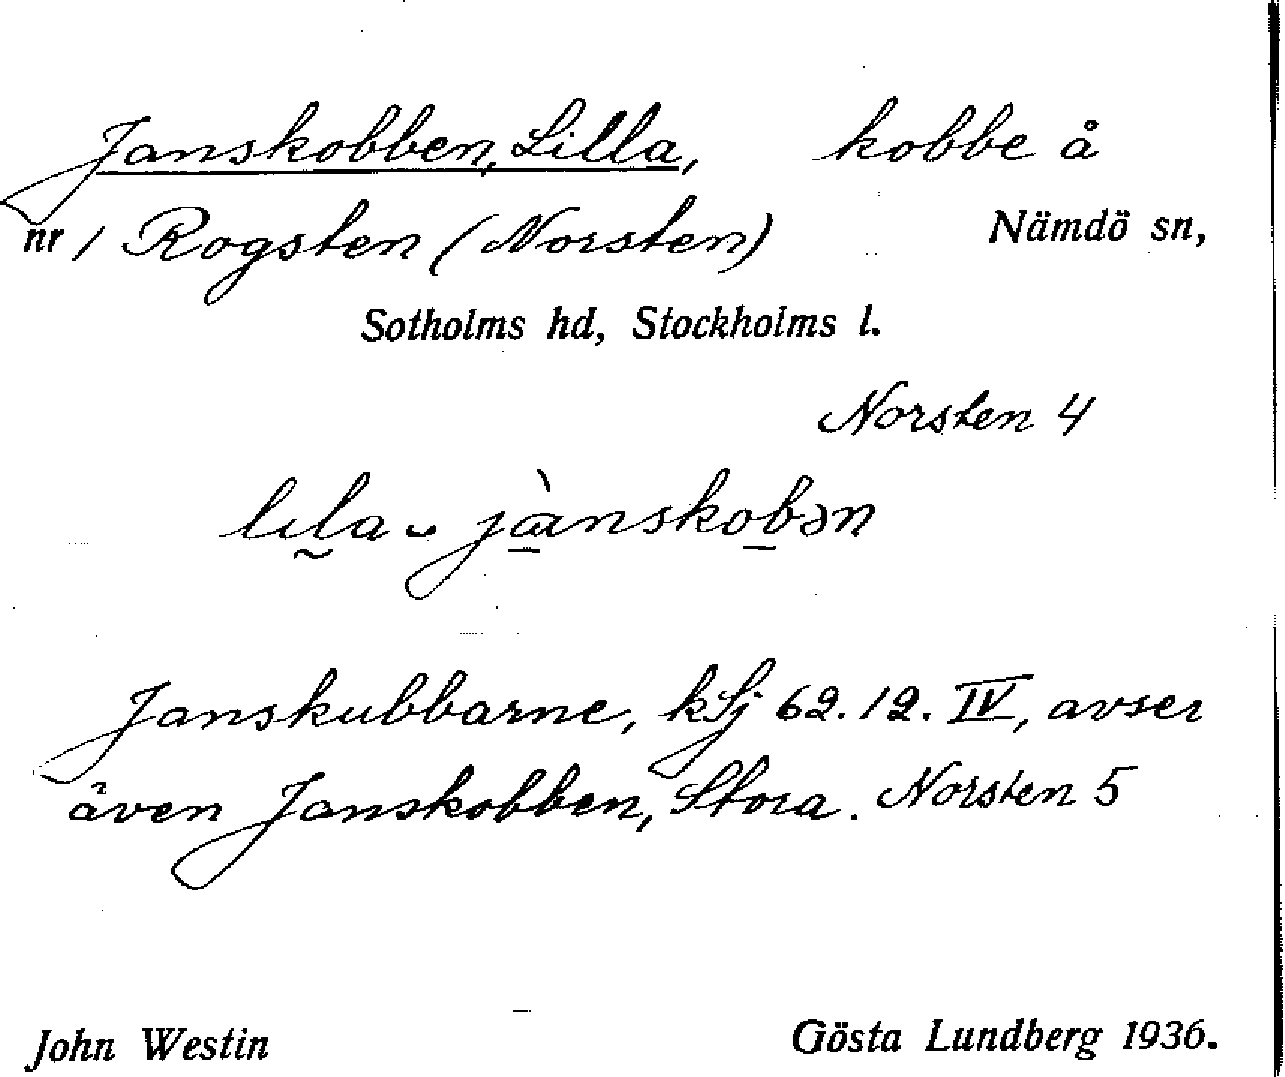 Janskobben, Lilla, kobbe å
nr 1 Rogsten (Norsten) Nämdö sn,
Sotholms hd, Stockholms l.
Norsten 4
lıla ‿ jànskobən
Janskubbarne, kSj 62.12.IV, avser
även Janskobben, Stora. Norsten 5
John Westin Gösta Lundberg 1936.